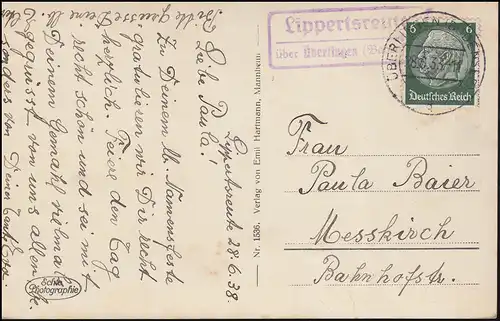 Lippertsreute 28.6.38.
Liebe Paula!
Zu Deinem lb. Namensfeste
gratulieren wir Dir recht
herzlich. Feiere den Tag
recht schön und sei mit
Deinem Gemahl vielmals
gegrüsst von uns allen
sonders von Deiner Tante
Bitte grüsse Deine
Schöning Photographie
Nr. 1536. Verlag von Emil Hartmann, Mannheim
Lippertsreute
über Überlingen
ÜBERLINGEN
6 6
Deutsches Reich
Frau
Paula Baier
Messkirch
Bahnhofstr.